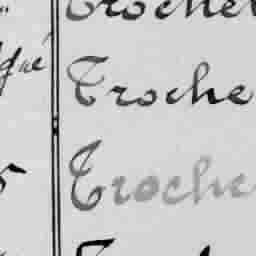 Trochet
qué
Troche
5
Troche